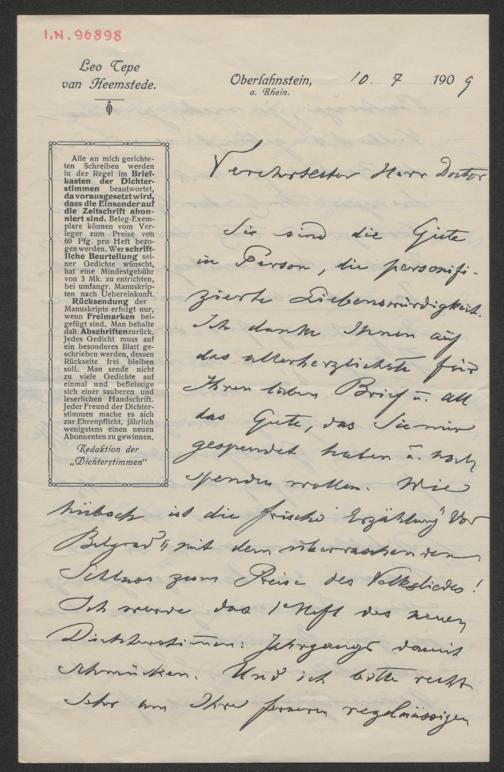 I.N. 96898
Leo Tepe
van Heemstede.
Oberlahnstein,
a. Rhein.
10. 7 1909
Alle an mich gerichte-
ten Schreiben werden
in der Regel im Brief-
kasten der Dichter-
stimmen beantwortet,
da vorausgesetzt wird,
dass die Einsender auf
die Zeitschrift abon-
niert sind. Beleg-Exem-
plare können vom Ver-
leger zum Preise von
60 Pfg. pro Heft bezo-
gen werden. Wer schrift-
liche Beurteilung sei-
ner Gedichte wünscht,
hat eine Mindestgebühr
von 3 Mk. zu entrichten,
bei umfangr. Manuskrip-
ten nach Uebereinkunft.
Rücksendung der
Manuskripte erfolgt nur,
wenn Freimarken bei-
gefügt sind. Man behalte
dah. Abschriften zurück.
Jedes Gedicht muss auf
ein besonderes Blatt ge-
schrieben werden, dessen
Rückseite frei bleiben
soll. Man sende nicht
zu viele Gedichte auf
einmal und befleissige
sich einer sauberen und
leserlichen Handschrift.
Jeder Freund der Dichter-
stimmen mache es sich
zur Ehrenpflicht, jährlich
wenigstens einen neuen
Abonnenten zu gewinnen.
Redaktion der
„Dichterstimmen"
Verehrtester Herr Doctor
Sie sind die Güte
in Person, die personifi-
zierte Liebenswürdigkeit.
Ich danke Ihnen auf
das allerherzlichste für
Ihren lieben Brief u. all
das Gute, das Sie mir
gespendet haben u. noch
spenden wollen. Wie
hübsch ist die frische Erzählung „Vor
Belgrad", mit dem überraschenden
Schluss zum Preise des Volksliedes!
Ich werde das 1. Heft des neuen
Dichterstimmen: Jahrgangs damit
schmücken. Und ich bitte recht
sehr um Ihre ferneren regelmässigen